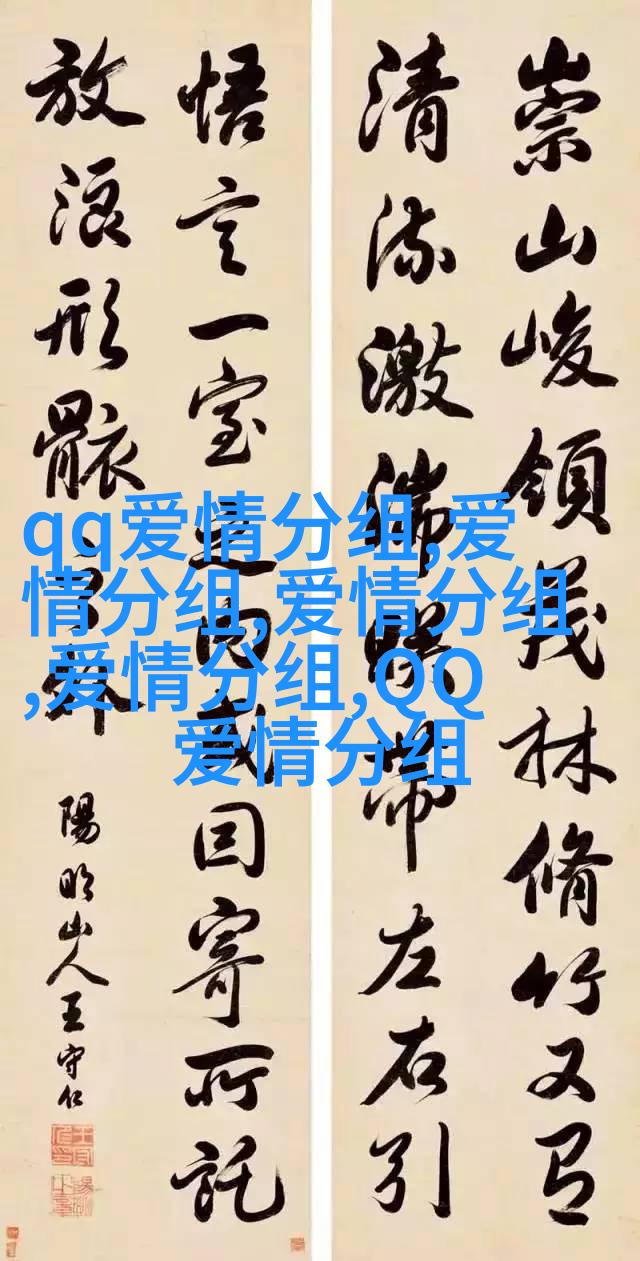 崇山峻領茂林脩竹又有
清流激湍暎帶左右引
悟言一室之內或因寄所託
放浪形骸之外
陽明山人王守仁
qq爱情分组,爱
情分组,爱情分组
,爱情分组,QQ
爱情分组